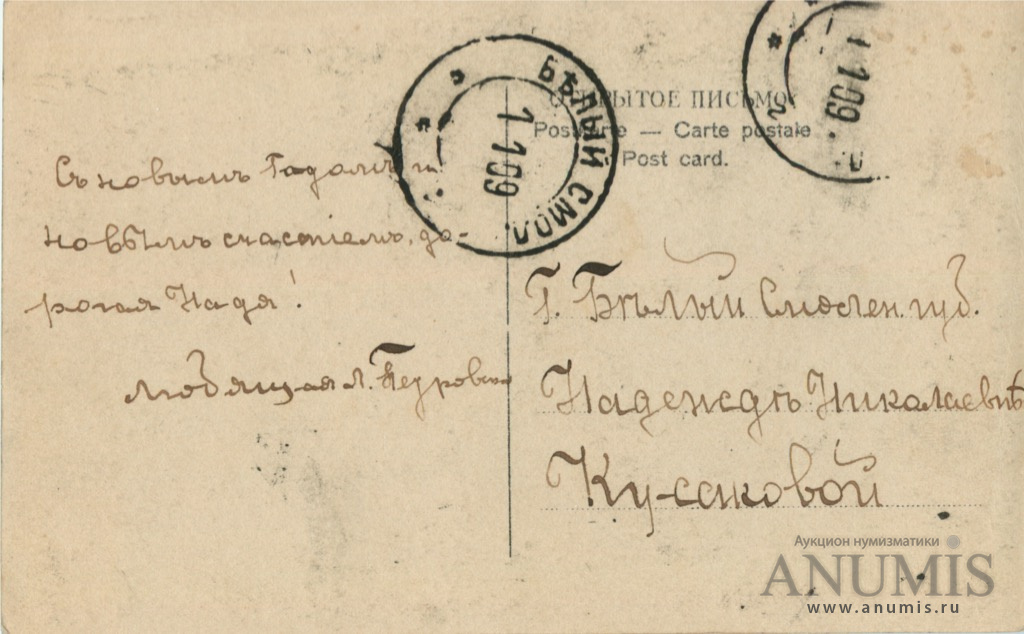 Съ новымъ Годомъ и
новымъ счастіемъ, до-
рогая Надя!
любящая Л.
ОТКРЫТОЕ ПИСЬМО
Postkarte — Carte postale
Post card.
БѢЛЫЙ СМОЛ.
1 1 09
1 1 09
Г. Бѣлый Смолен. губ.
Надеждѣ Николаевнѣ
Кусаковой
Аукцион нумизматики
ANUMIS
www.anumis.ru